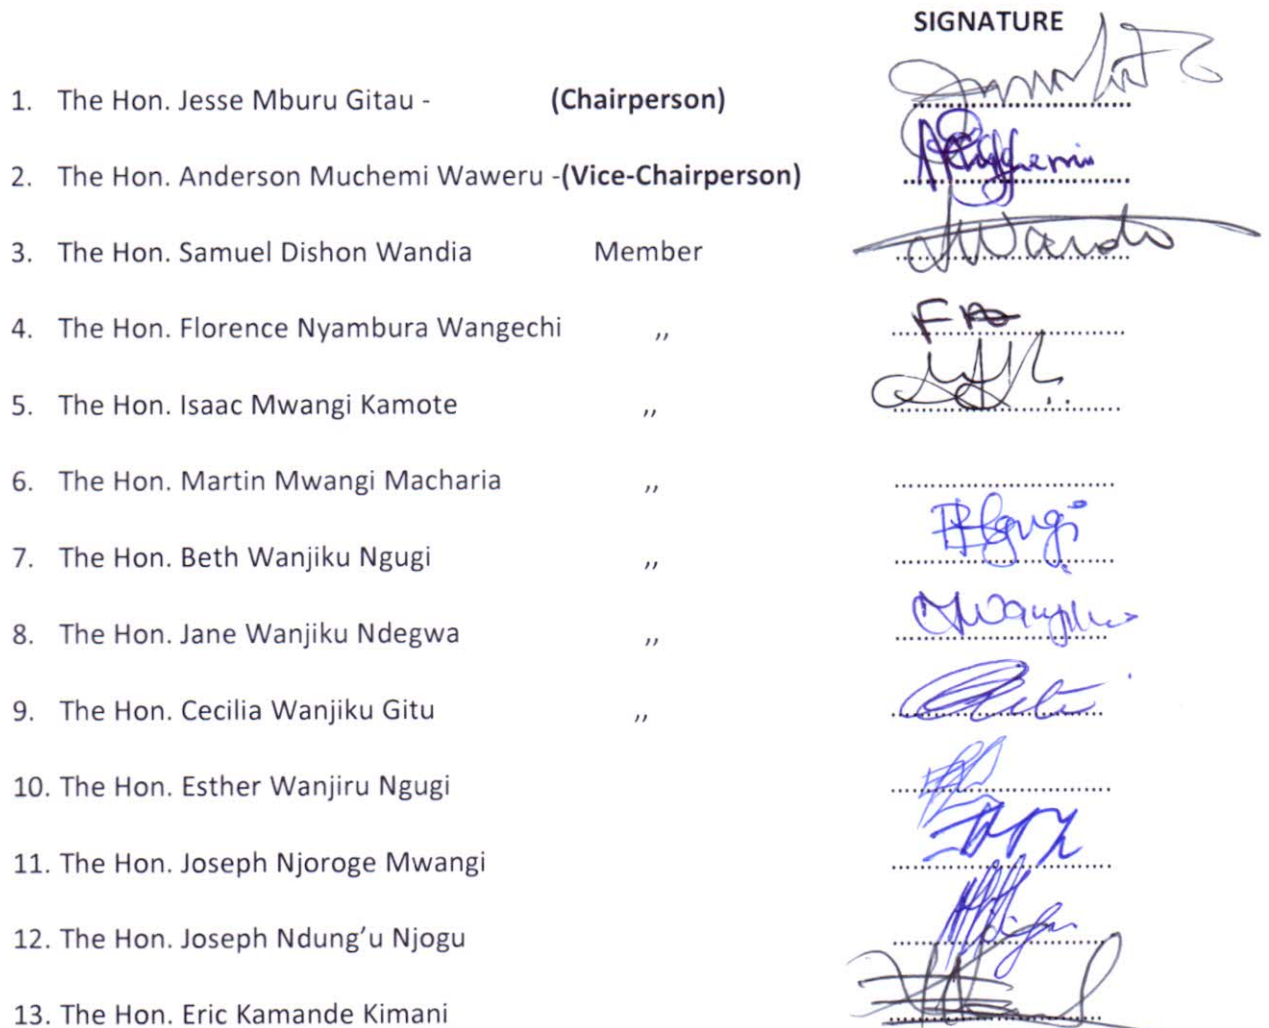 SIGNATURE
1. The Hon. Jesse Mburu Gitau - (Chairperson)
2. The Hon. Anderson Muchemi Waweru -(Vice-Chairperson)
3. The Hon. Samuel Dishon Wandia Member
4. The Hon. Florence Nyambura Wangechi ,,
5. The Hon. Isaac Mwangi Kamote ,,
6. The Hon. Martin Mwangi Macharia ,,
7. The Hon. Beth Wanjiku Ngugi ,,
8. The Hon. Jane Wanjiku Ndegwa ,,
9. The Hon. Cecilia Wanjiku Gitu ,,
10. The Hon. Esther Wanjiru Ngugi
11. The Hon. Joseph Njoroge Mwangi
12. The Hon. Joseph Ndung’u Njogu
13. The Hon. Eric Kamande Kimani